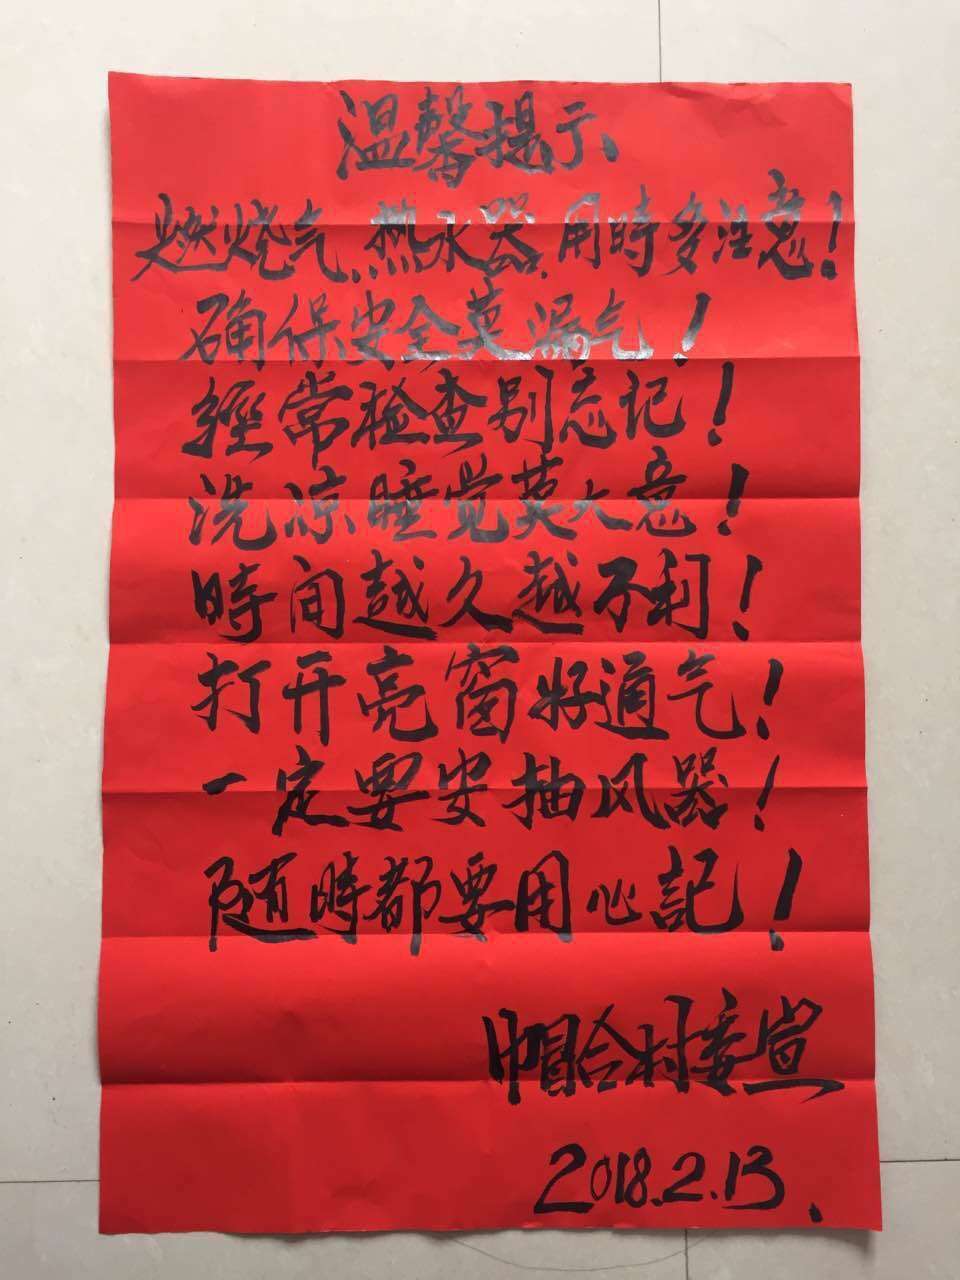 温馨提示
燃烧气.热水器.用時多注意！
确保安全莫漏气！
經常检查别忘记！
洗凉睡觉莫大意！
時间越久越不利！
打开亮窗好通气！
一定要安抽风器！
随時都要用心記！
帽合村委宣
2018.2.13.